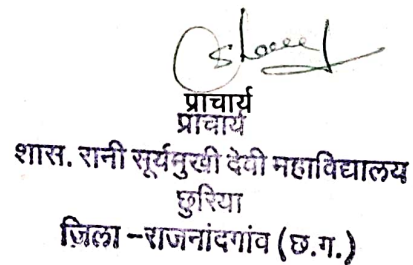 प्राचार्य
प्राचार्य
शास. रानी सूर्यमुखी देवी महाविद्यालय
छुरिया
ज़िला –राजनांदगांव (छ.ग.)